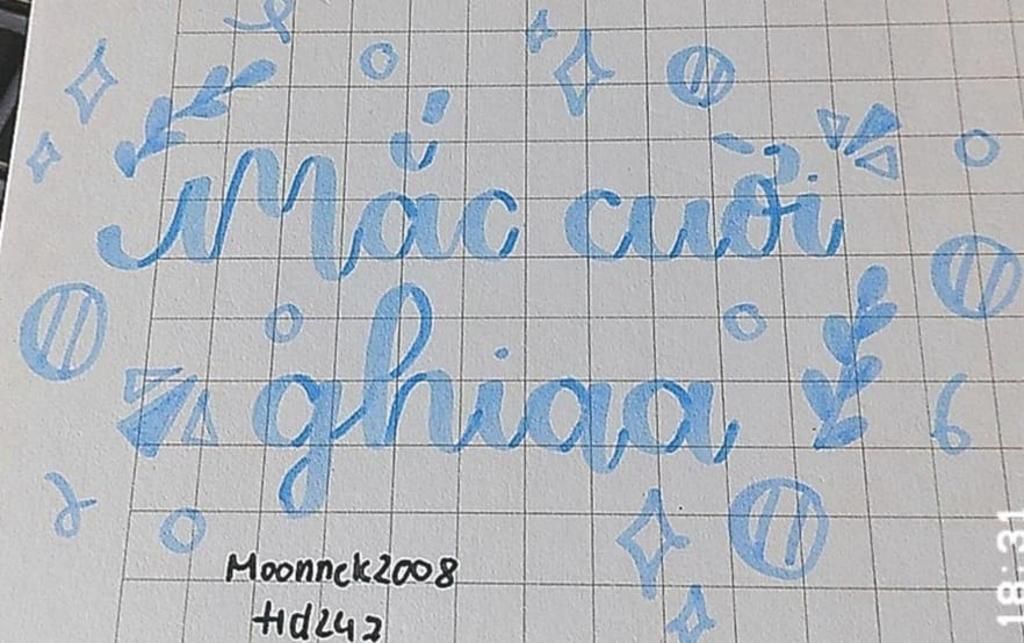 Mắc cười
ghiqa
Moonnck2008
Hd247
18:31